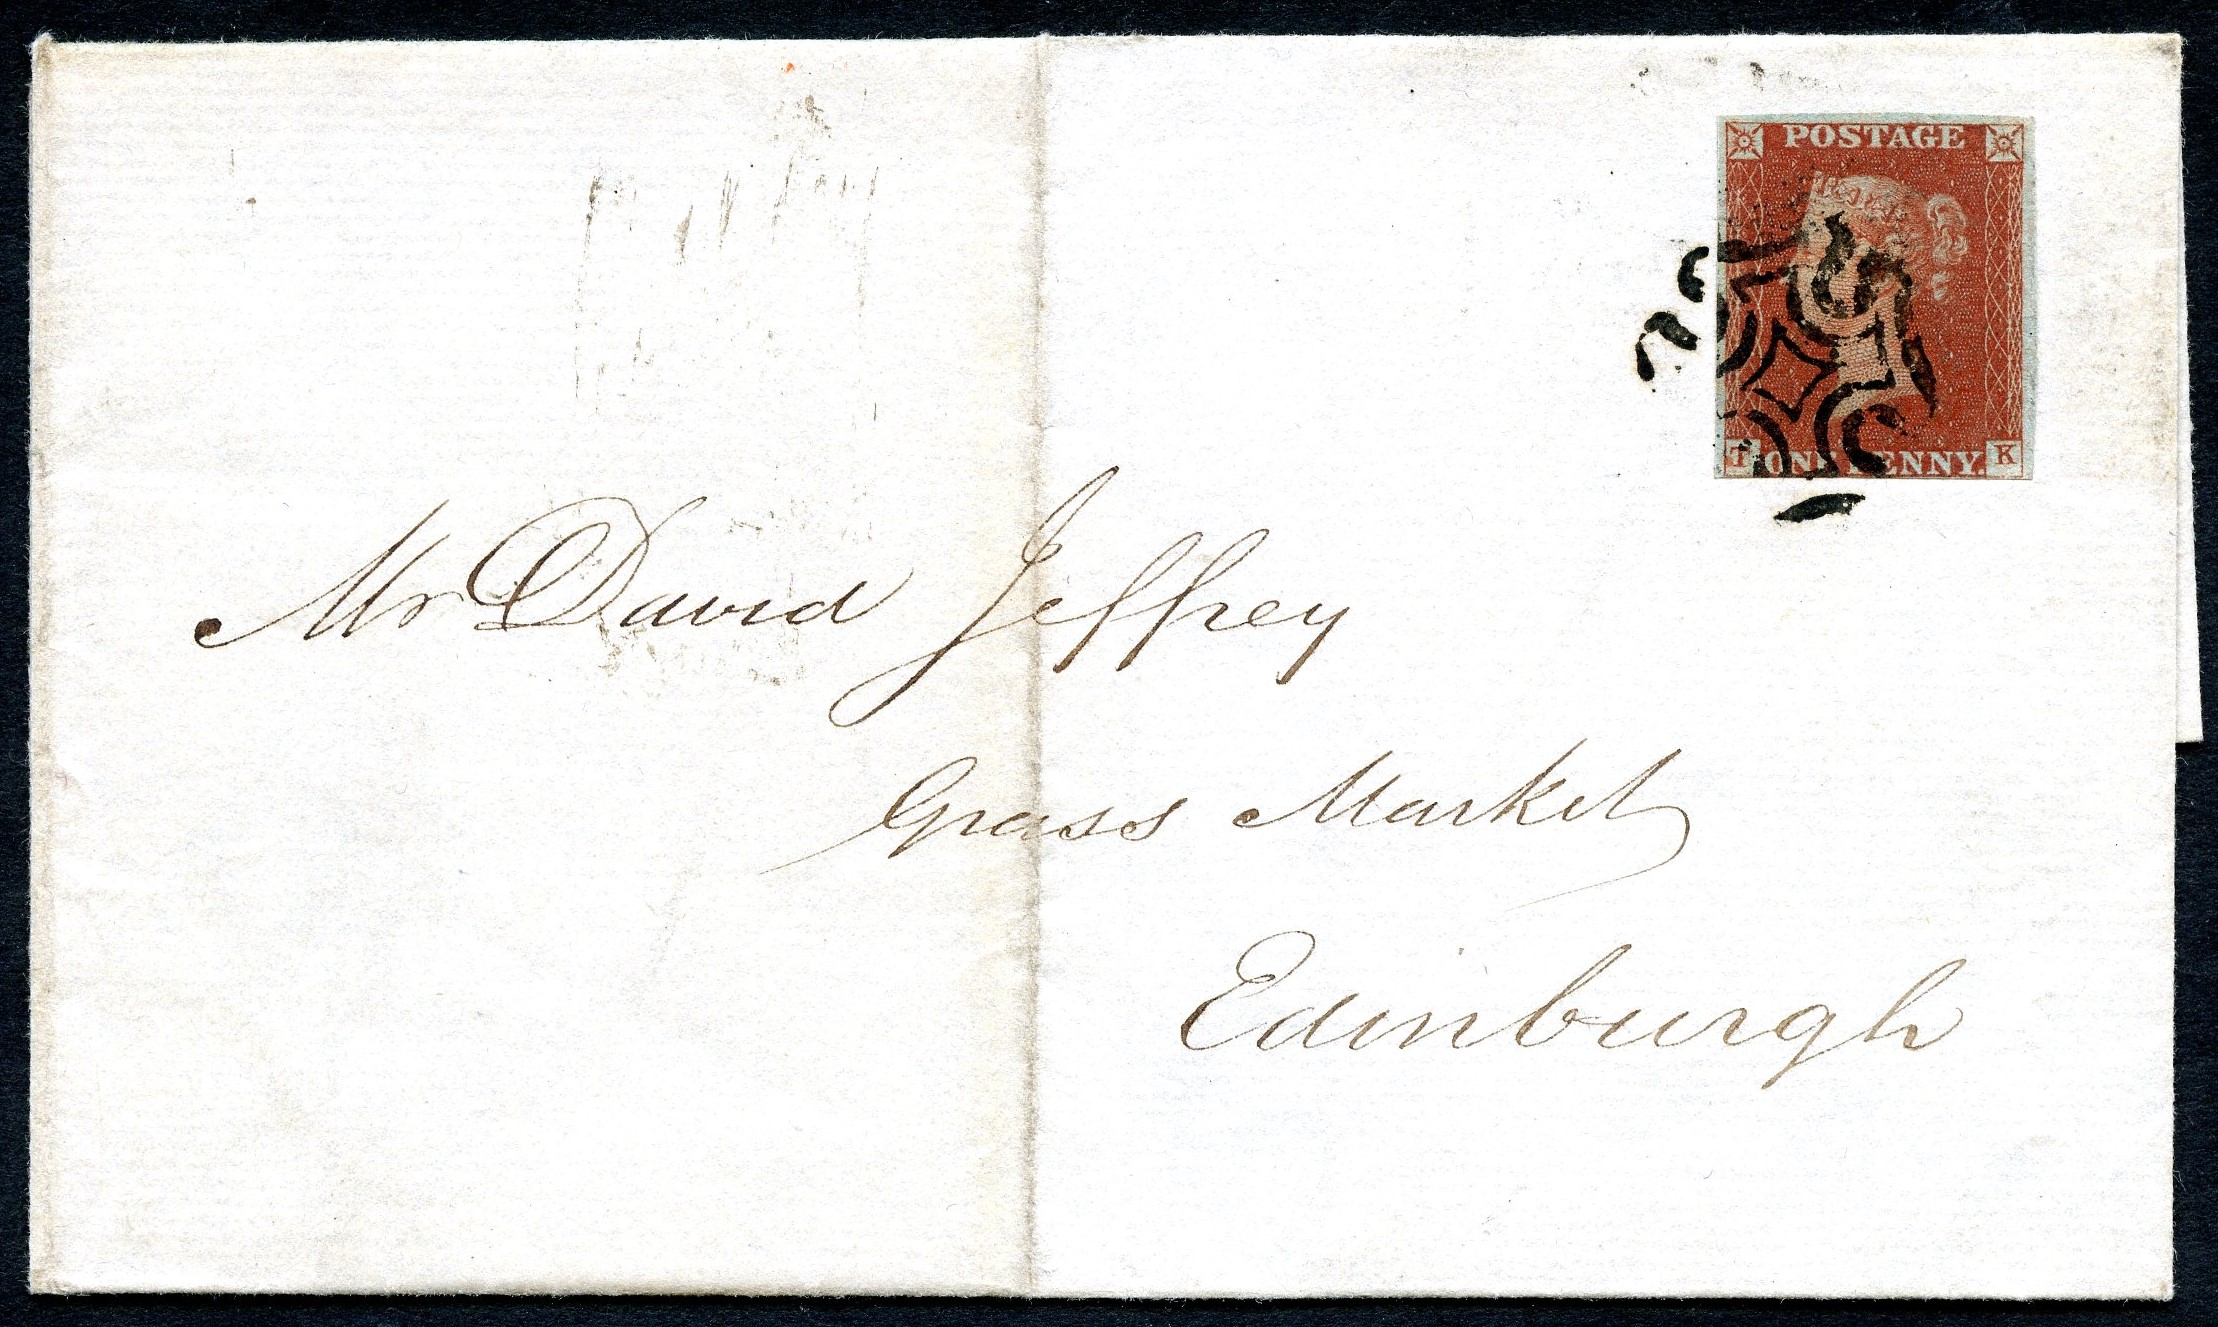 POSTAGE
T ONE PENNY. K
Mr David Jeffrey
Grass Market
Edinburgh